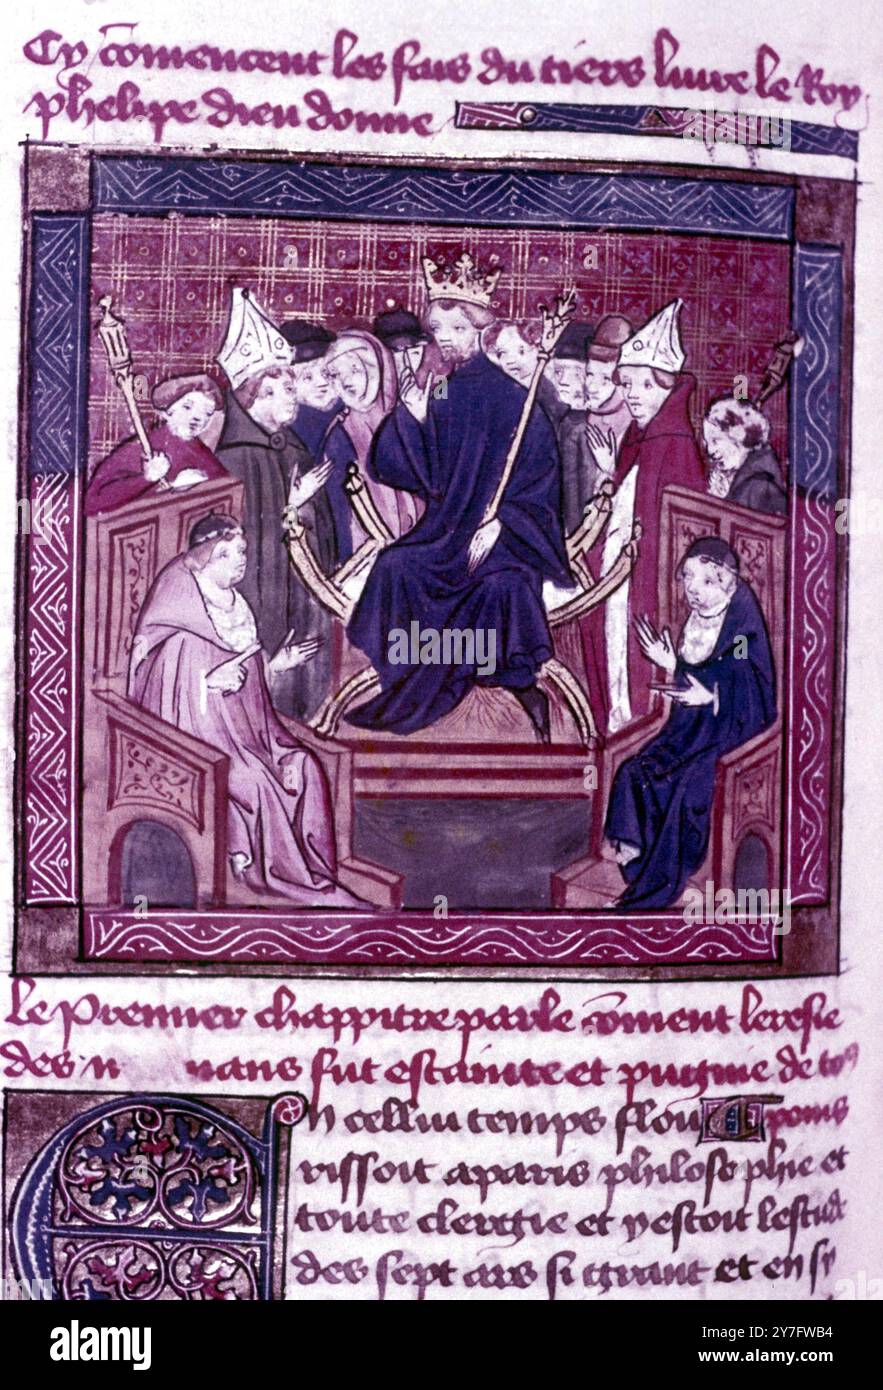 Cy cõmencent les fais du tiers livre le Roy
phelipe dieu donne
le premier chappitre parle cõment leresie
des fut estainte et pugnie de
En cellui temps flou
rissoit a paris philosophie et
toute clergie et y estoit lestude
des sept ars si grant et en sy
alamy
Image ID: 2Y7FWB4
www.alamy.com